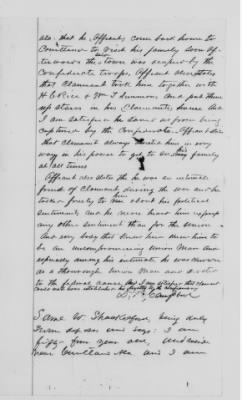 also that he Affiant, come back home to
Courtland to visit his family soon af-
terwards the town was occupied by the
Confederate troops, Affiant also states
that Claimant took him together with
H C Rice & Wm T Simmons and put them
up stairs in his (Claimants) house and
I am satisfied he saved us from being
captured by the Confederates Affiant also
that Claimant always aided him in every
way in his power to get to see his family
at all times
Affiant also states that he was an intimate
friend of Claimant, during the war and he
talked freely to him about his political
sentiments and he never heard him express
any other sentiment than for the union
and every body that knew him knew him to
be an uncompromising Union Man and
especially among his intimates he was known
as a thorough Union Man and
to the federal cause, And I am satisfied this claimant
could not have established his loyalty by the Confederacy
Campbell
James W Shackelford, being duly
Sworn deposes and says: I am
fifty-four years old, and reside
near Courtland Ala and I am